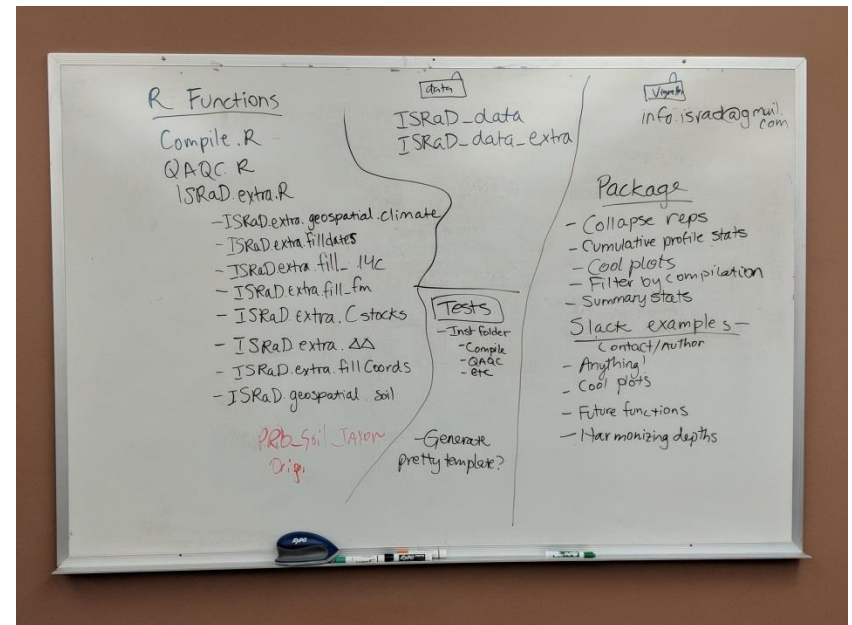 R Functions
Compile.R
QAQC.R
ISRaD.extra.R
- ISRaD.extra.geospatial.climate
- ISRaD.extra.filldates
- ISRaD.extra.fill_14c
- ISRaD.extra.fill_fm
- ISRaD.extra.Cstocks
- ISRaD.extra.ΔΔ
- ISRaD.extra.fillCoords
- ISRaD.geospatial.soil
data
ISRaD_data
ISRaD_data_extra
Tests
- Inst folder
- Compile
- QAQC
- etc
- Generate
pretty template?
info.israd@gmail.
com
Package
- Collapse reps
- Cumulative profile stats
- Cool plots
- Filter by compilation
- Summary stats
Slack examples -
Contact/Author
- Anything!
- Cool plots
- Future functions
- Harmonizing depths
EXPO